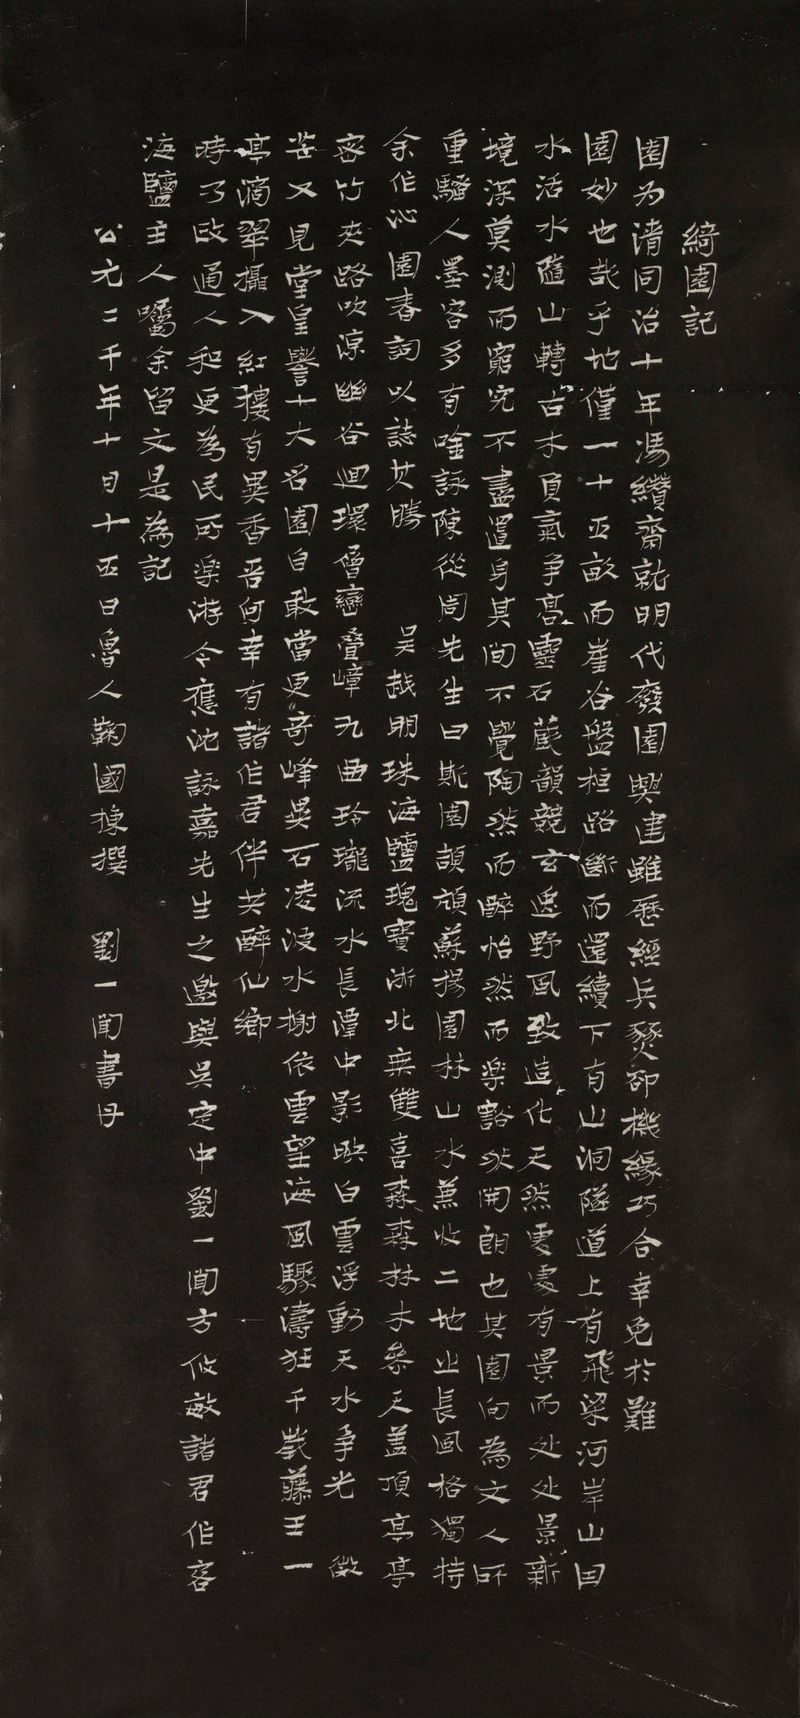 綺園記
園為清同治十年馮纘齋就明代廢園興建雖歷經兵燹卻機緣巧合幸免於難
園妙也哉乎地僅一十五畝而崖谷盤桓路斷而還續下有山洞隧道上有飛梁河岸山因
水活水隨山轉古木頂氣爭高靈石蔵韻競玄逸野風致造化天然雯雯有景而处处景新
境深莫測而窮究不盡置身其間不覺陶然而醉怡然而樂豁然開朗也其園向為文人所
重騷人墨客多有唫詠陳從周先生曰斯園頡頏蘇揚園林山水兼收二地之長風格獨特
余作沁園春詞以誌其勝 吳越明珠海鹽瑰寶浙北無雙喜森森林木參天蓋頂亭亭
密竹夾路吹涼幽谷迴環層巒疊嶂九曲玲瓏流水長潭中影映白雲浮動天水爭光 微
茫又見堂皇譽十大名園自敢當更奇峰吳石凌波水榭依雲望海風驟濤狂千載藤王一
亭滴翠攝入紅摟有異香吾何幸有諸作君伴共醉仙鄉
時乃政通人和更為民所樂游今應沈詠嘉先生之邀與吳定中劉一聞方攸敏諸君作客
海鹽主人囑余留文是為記
公元二千年十月十五日魯人鞠國棟撰 劉一聞書丹